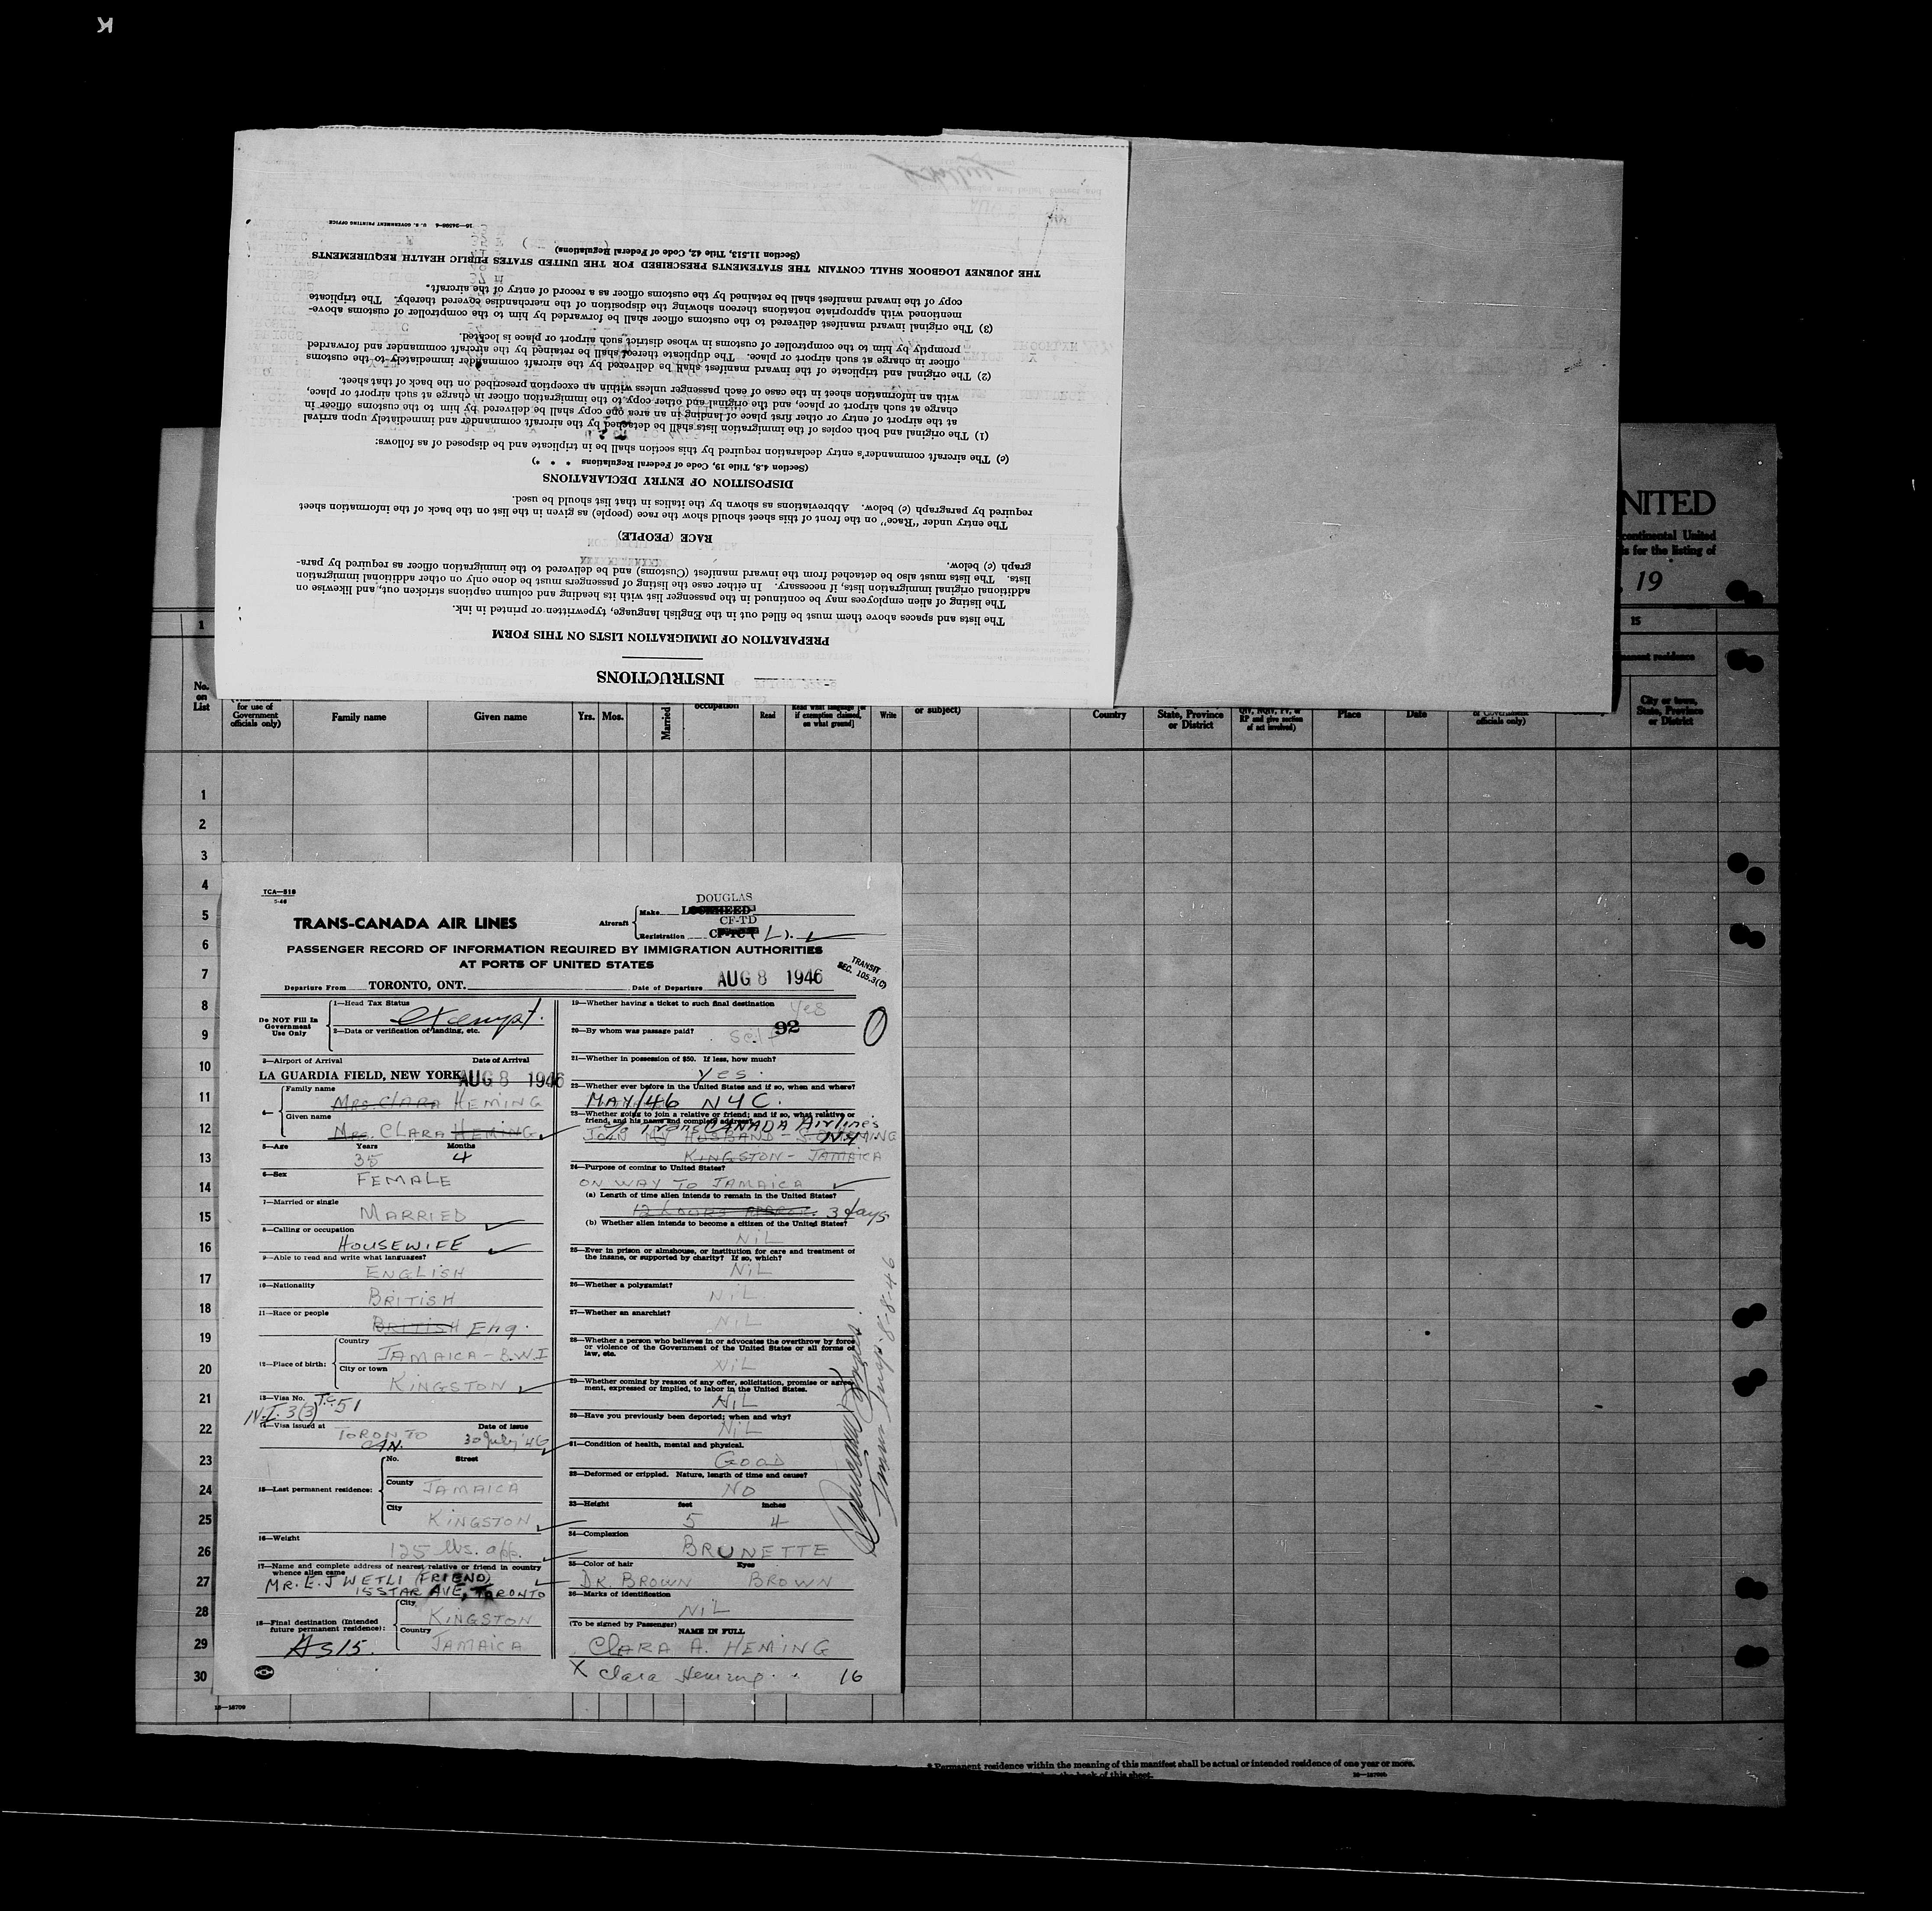 K
INSTRUCTIONS
PREPARATION OF IMMIGRATION LISTS ON THIS FORM
The lists and spaces above them must be filled out in the English language, typewritten or printed in ink.
The listing of alien employees may be continued in the passenger list with its heading and column captions stricken out, and likewise on
additional original immigration lists, if necessary. In either case the listing of passengers must be done only on other additional immigration
lists. The lists must also be detached from the inward manifest (Customs) and be delivered to the immigration officer as required by para-
graph (c) below.
RACE (PEOPLE)
The entry under "Race" on the front of this sheet should show the race (people) as given in the list on the back of the information sheet
required by paragraph (c) below. Abbreviations as shown by the italics in that list should be used.
DISPOSITION OF ENTRY DECLARATIONS
(Section 4.8, Title 19, Code of Federal Regulations * * *)
(c) The aircraft commander's entry declaration required by this section shall be in triplicate and be disposed of as follows:
(1) The original and both copies of the immigration lists shall be detached by the aircraft commander and immediately upon arrival
at the airport of entry or other first place of landing in an area one copy shall be delivered by him to the customs officer in
charge at such airport or place, and the original and other copy to the immigration officer in charge at such airport or place,
with an information sheet in the case of each passenger unless within an exception prescribed on the back of that sheet.
(2) The original and triplicate of the inward manifest shall be delivered by the aircraft commander immediately to the customs
officer in charge at such airport or place. The duplicate thereof shall be retained by the aircraft commander and forwarded
promptly by him to the comptroller of customs in whose district such airport or place is located.
(3) The original inward manifest delivered to the customs officer shall be forwarded by him to the comptroller of customs above-
mentioned with appropriate notations thereon showing the disposition of the merchandise covered thereby. The triplicate
copy of the inward manifest shall be retained by the customs officer as a record of entry of the aircraft.
THE JOURNEY LOGBOOK SHALL CONTAIN THE STATEMENTS PRESCRIBED FOR THE UNITED STATES PUBLIC HEALTH REQUIREMENTS
(Section 11.513, Title 42, Code of Federal Regulations)
U. S. GOVERNMENT PRINTING OFFICE
NITED
continental United
is for the listing of
, 19
1
15
No. on List
for use of Government officials only)
Family name
Given name
Yrs. Mos.
Married
occupation
Read
Read what language [or if exemption claimed, on what ground]
Write
or subject)
Country
State, Province or District
RP and give section of act involved)
Place
Date
officials only)
City or town, State, Province or District
1
2
3
4
5
6
7
8
9
10
11
12
13
14
15
16
17
18
19
20
21
22
23
24
25
26
27
28
29
30
TCA—518
TRANS-CANADA AIR LINES
Aircraft
DOUGLAS
Make LOCKHEED
CF-TD
Registration CF-TC (L).
PASSENGER RECORD OF INFORMATION REQUIRED BY IMMIGRATION AUTHORITIES
AT PORTS OF UNITED STATES
TRANSIT
SEC. 105.3(C)
Departure From TORONTO, ONT. Date of Departure AUG 8 1946
Do NOT Fill In Government Use Only
1—Head Tax Status
exempt.
2—Data or verification of landing, etc.
3—Airport of Arrival Date of Arrival
LA GUARDIA FIELD, NEW YORK AUG 8 1946
4—
Family name
MRS. CLARA HEMING
Given name
MRS. CLARA HEMING
5—Age Years Months
35 4
6—Sex
FEMALE
7—Married or single
MARRIED
8—Calling or occupation
HOUSEWIFE
9—Able to read and write what languages?
ENGLISH
10—Nationality
BRITISH
11—Race or people
BRITISH Eng.
12—Place of birth:
Country
JAMAICA - B.W.I
City or town
KINGSTON
13—Visa No.
N.I. 3(3) 51
14—Visa issued at Date of issue
TORONTO CAN. 30 July '46
15—Last permanent residence:
No. Street
County
JAMAICA
City
KINGSTON
16—Weight
125 lbs. app.
17—Name and complete address of nearest relative or friend in country whence alien came
MR. E. J WETLI (FRIEND)
15 STAR AVE, TORONTO
18—Final destination (Intended future permanent residence):
City
KINGSTON
Country
JAMAICA
19—Whether having a ticket to such final destination
Yes
20—By whom was passage paid?
Self 92
0
21—Whether in possession of $50. If less, how much?
Yes.
22—Whether ever before in the United States and if so, when and where?
MAY/46 NYC.
23—Whether going to join a relative or friend; and if so, what relative or
friend, and his name and complete address?
c/o Trans CANADA Airlines
JOIN MY HUSBAND - HEMING NY
KINGSTON - JAMAICA
24—Purpose of coming to United States?
ON WAY TO JAMAICA
(a) Length of time alien intends to remain in the United States?
12 hours approx. 3 days
(b) Whether alien intends to become a citizen of the United States?
NIL
25—Ever in prison or almshouse, or institution for care and treatment of
the insane, or supported by charity? If so, which?
NIL
26—Whether a polygamist?
NIL
27—Whether an anarchist?
NIL
28—Whether a person who believes in or advocates the overthrow by force
or violence of the Government of the United States or all forms of
law, etc.
NIL
29—Whether coming by reason of any offer, solicitation, promise or agree-
ment, expressed or implied, to labor in the United States.
NIL
30—Have you previously been deported; when and why?
NIL
31—Condition of health, mental and physical.
GOOD
32—Deformed or crippled. Nature, length of time and cause?
NO
33—Height feet inches
5 4
34—Complexion
BRUNETTE
35—Color of hair Eyes
DK BROWN BROWN
36—Marks of identification
NIL
(To be signed by Passenger)
NAME IN FULL
CLARA A. HEMING
X Clara Heming 16
Immig. Insp. 8-8-46
* Permanent residence within the meaning of this manifest shall be actual or intended residence of one year or more.
back of this sheet.